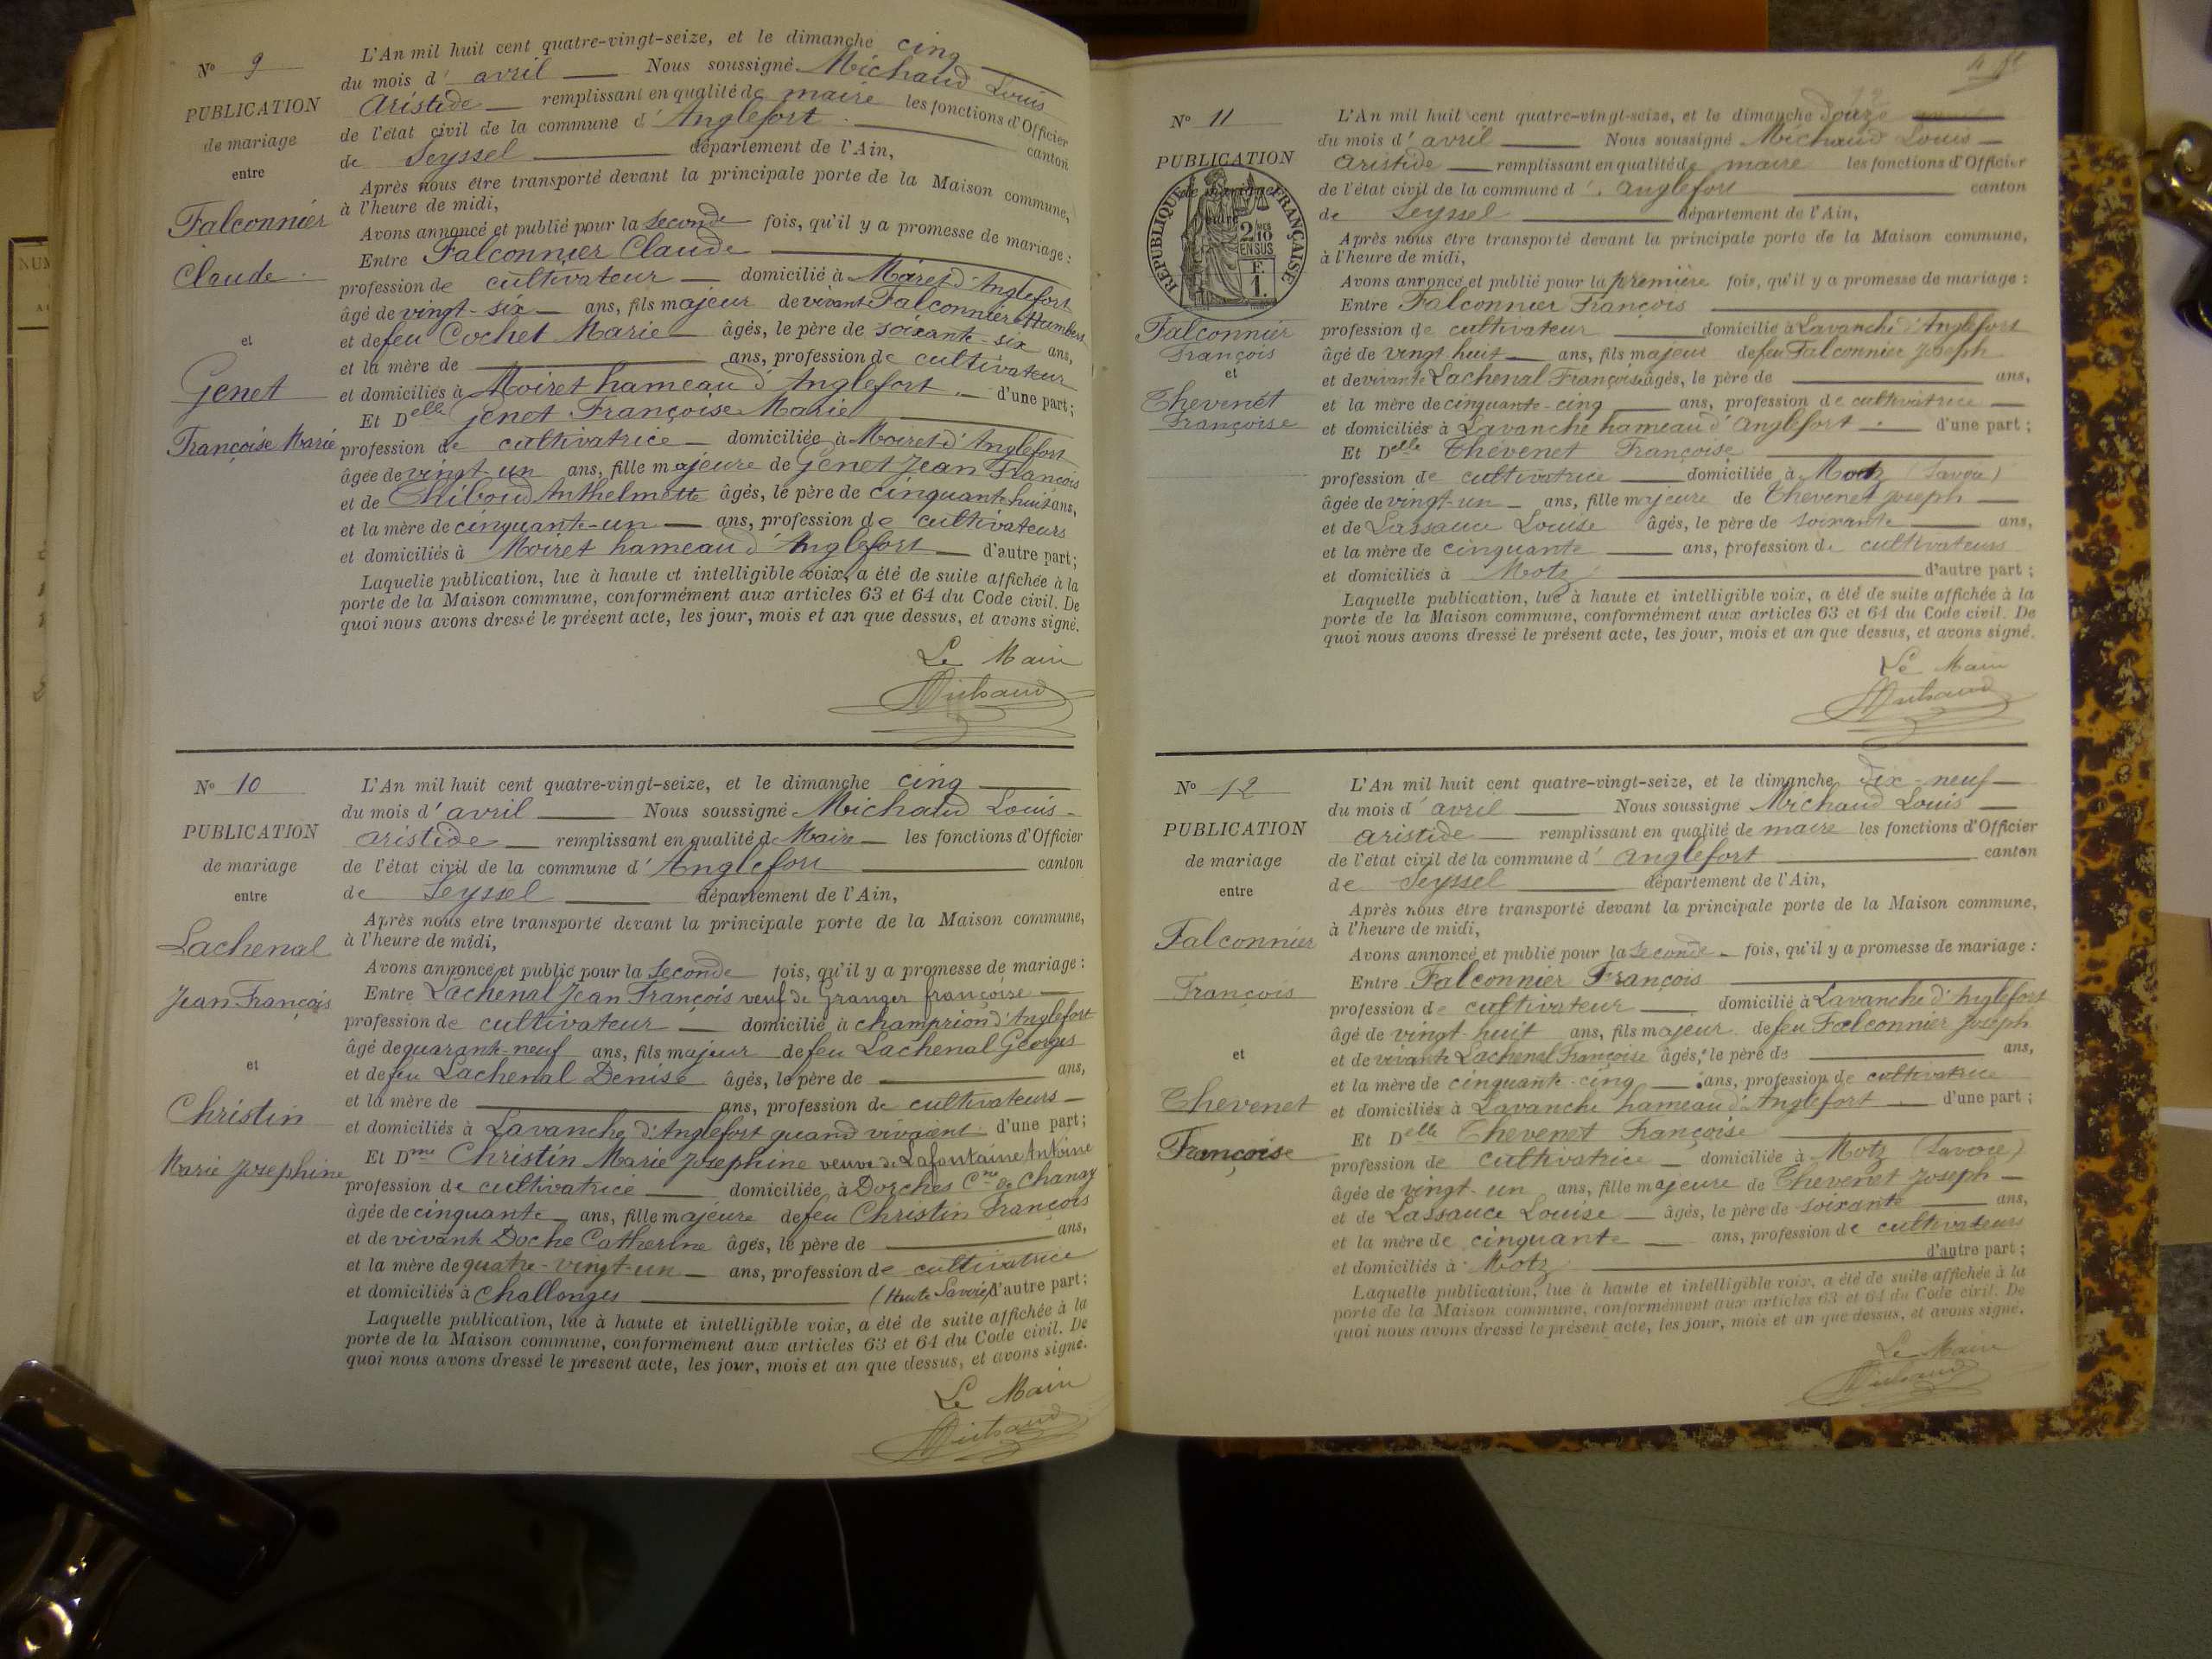 N° 9
PUBLICATION
de mariage
entre
Falconnier
Claude
et
Genet
Françoise Marie
L'An mil huit cent quatre-vingt-seize, et le dimanche cinq
du mois d'avril Nous soussigné Michaud Louis
Aristide remplissant en qualité de maire les fonctions d'Officier
de l'état civil de la commune d'Anglefort canton
de Seyssel département de l'Ain,
Après nous être transporté devant la principale porte de la Maison commune,
à l'heure de midi,
Avons annoncé et publié pour la seconde fois, qu'il y a promesse de mariage :
Entre Falconnier Claude
profession de cultivateur domicilié à Moiret d'Anglefort
âgé de vingt-six ans, fils majeur de vivant Falconnier Humbert
et de feu Cochet Marie âgés, le père de soixante-six ans,
et la mère de ans, profession de cultivateur
et domiciliés à Moiret hameau d'Anglefort d'une part ;
Et Delle Genet Françoise Marie
profession de cultivatrice domiciliée à Moiret d'Anglefort
âgée de vingt-un ans, fille majeure de Genet Jean François
et de Thiboud Anthelmette âgés, le père de cinquante huit ans,
et la mère de cinquante-un ans, profession de cultivateurs
et domiciliés à Moiret hameau d'Anglefort d'autre part ;
Laquelle publication, lue à haute et intelligible voix, a été de suite affichée à la
porte de la Maison commune, conformément aux articles 63 et 64 du Code civil. De
quoi nous avons dressé le présent acte, les jour, mois et an que dessus, et avons signé.
Le Maire
Michaud
N° 10
PUBLICATION
de mariage
entre
Lachenal
Jean François
et
Christin
Marie Josephine
L'An mil huit cent quatre-vingt-seize, et le dimanche cinq
du mois d'avril Nous soussigné Michaud Louis
Aristide remplissant en qualité de Maire les fonctions d'Officier
de l'état civil de la commune d'Anglefort canton
de Seyssel département de l'Ain,
Après nous etre transporté devant la principale porte de la Maison commune,
à l'heure de midi,
Avons annoncé et publié pour la seconde fois, qu'il y a promesse de mariage :
Entre Lachenal Jean François veuf de Granger françoise
profession de cultivateur domicilié à Champrion d'Anglefort
âgé de quarante-neuf ans, fils majeur de feu Lachenal Georges
et de feu Lachenal Denise âgés, le père de ans,
et la mère de ans, profession de cultivateurs
et domiciliés à Lavanche d'Anglefort quand vivaient d'une part ;
Et Dme Christin Marie Josephine veuve de Lafontaine Antoine
profession de cultivatrice domiciliée à Dorches Cne de Chanay
âgée de cinquante ans, fille majeure de feu Christin François
et de vivante Doche Catherine âgés, le père de ans,
et la mère de quatre-vingt-un ans, profession de cultivatrice
et domiciliés à Challonges (Haute Savoie) d'autre part ;
Laquelle publication, lue à haute et intelligible voix, a été de suite affichée à la
porte de la Maison commune, conformément aux articles 63 et 64 du Code civil. De
quoi nous avons dressé le présent acte, les jour, mois et an que dessus, et avons signé.
Le Maire
Michaud
N° 11
PUBLICATION
de mariage
entre
RÉPUBLIQUE FRANÇAISE
2 10
EN SUS
F.
1.
Falconnier
François
et
Thevenet
Françoise
L'An mil huit cent quatre-vingt-seize, et le dimanche douze
du mois d'avril Nous soussigné Michaud Louis
Aristide remplissant en qualité de maire les fonctions d'Officier
de l'état civil de la commune d'Anglefort canton
de Seyssel département de l'Ain,
Après nous être transporté devant la principale porte de la Maison commune,
à l'heure de midi,
Avons annoncé et publié pour la première fois, qu'il y a promesse de mariage :
Entre Falconnier François
profession de cultivateur domicilié à Lavanche d'Anglefort
âgé de vingt huit ans, fils majeur de feu Falconnier Joseph
et de vivante Lachenal Françoise âgés, le père de ans,
et la mère de cinquante-cinq ans, profession de cultivatrice
et domiciliés à Lavanche hameau d'Anglefort d'une part ;
Et Delle Thévenet Françoise
profession de cultivatrice domiciliée à Motz (Savoie)
âgée de vingt-un ans, fille majeure de Thevenet Joseph
et de Lassauce Louise âgés, le père de soixante ans,
et la mère de cinquante ans, profession de cultivateurs
et domiciliés à Motz d'autre part ;
Laquelle publication, lue à haute et intelligible voix, a été de suite affichée à la
porte de la Maison commune, conformément aux articles 63 et 64 du Code civil. De
quoi nous avons dressé le présent acte, les jour, mois et an que dessus, et avons signé.
Le Maire
Michaud
N° 12
PUBLICATION
de mariage
entre
Falconnier
François
et
Thevenet
Françoise
L'An mil huit cent quatre-vingt-seize, et le dimanche dix-neuf
du mois d'avril Nous soussigné Michaud Louis
Aristide remplissant en qualité de maire les fonctions d'Officier
de l'état civil de la commune d'Anglefort canton
de Seyssel département de l'Ain,
Après nous être transporté devant la principale porte de la Maison commune,
à l'heure de midi,
Avons annoncé et publié pour la seconde fois, qu'il y a promesse de mariage :
Entre Falconnier François
profession de cultivateur domicilié à Lavanche d'Anglefort
âgé de vingt-huit ans, fils majeur de feu Falconnier Joseph
et de vivante Lachenal Françoise âgés, le père de ans,
et la mère de cinquante-cinq ans, profession de cultivatrice
et domiciliés à Lavanche hameau d'Anglefort d'une part ;
Et Delle Thevenet Françoise
profession de cultivatrice domiciliée à Motz (Savoie)
âgée de vingt-un ans, fille majeure de Thevenet Joseph
et de Lassauce Louise âgés, le père de soixante ans,
et la mère de cinquante ans, profession de cultivateurs
et domiciliés à Motz d'autre part ;
Laquelle publication, lue à haute et intelligible voix, a été de suite affichée à la
porte de la Maison commune, conformément aux articles 63 et 64 du Code civil. De
quoi nous avons dressé le présent acte, les jour, mois et an que dessus, et avons signé.
Le Maire
Michaud